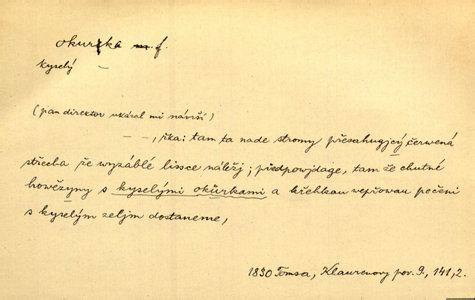 okurka m. f.
kyselý —
(pan direktor ukázal mi návrší)
— — , řka: tam ta nade stromy přesahugjcý červená
střecha že wyzáblé lissce náležj; předpowjdage, tam že chutné
howězyny s kyselými okůrkami a křehkau wepřowau pečeni
s kyselým zeljm dostaneme,
1830 Tomsa, Klaurenovy pov. 9., 141, 2.